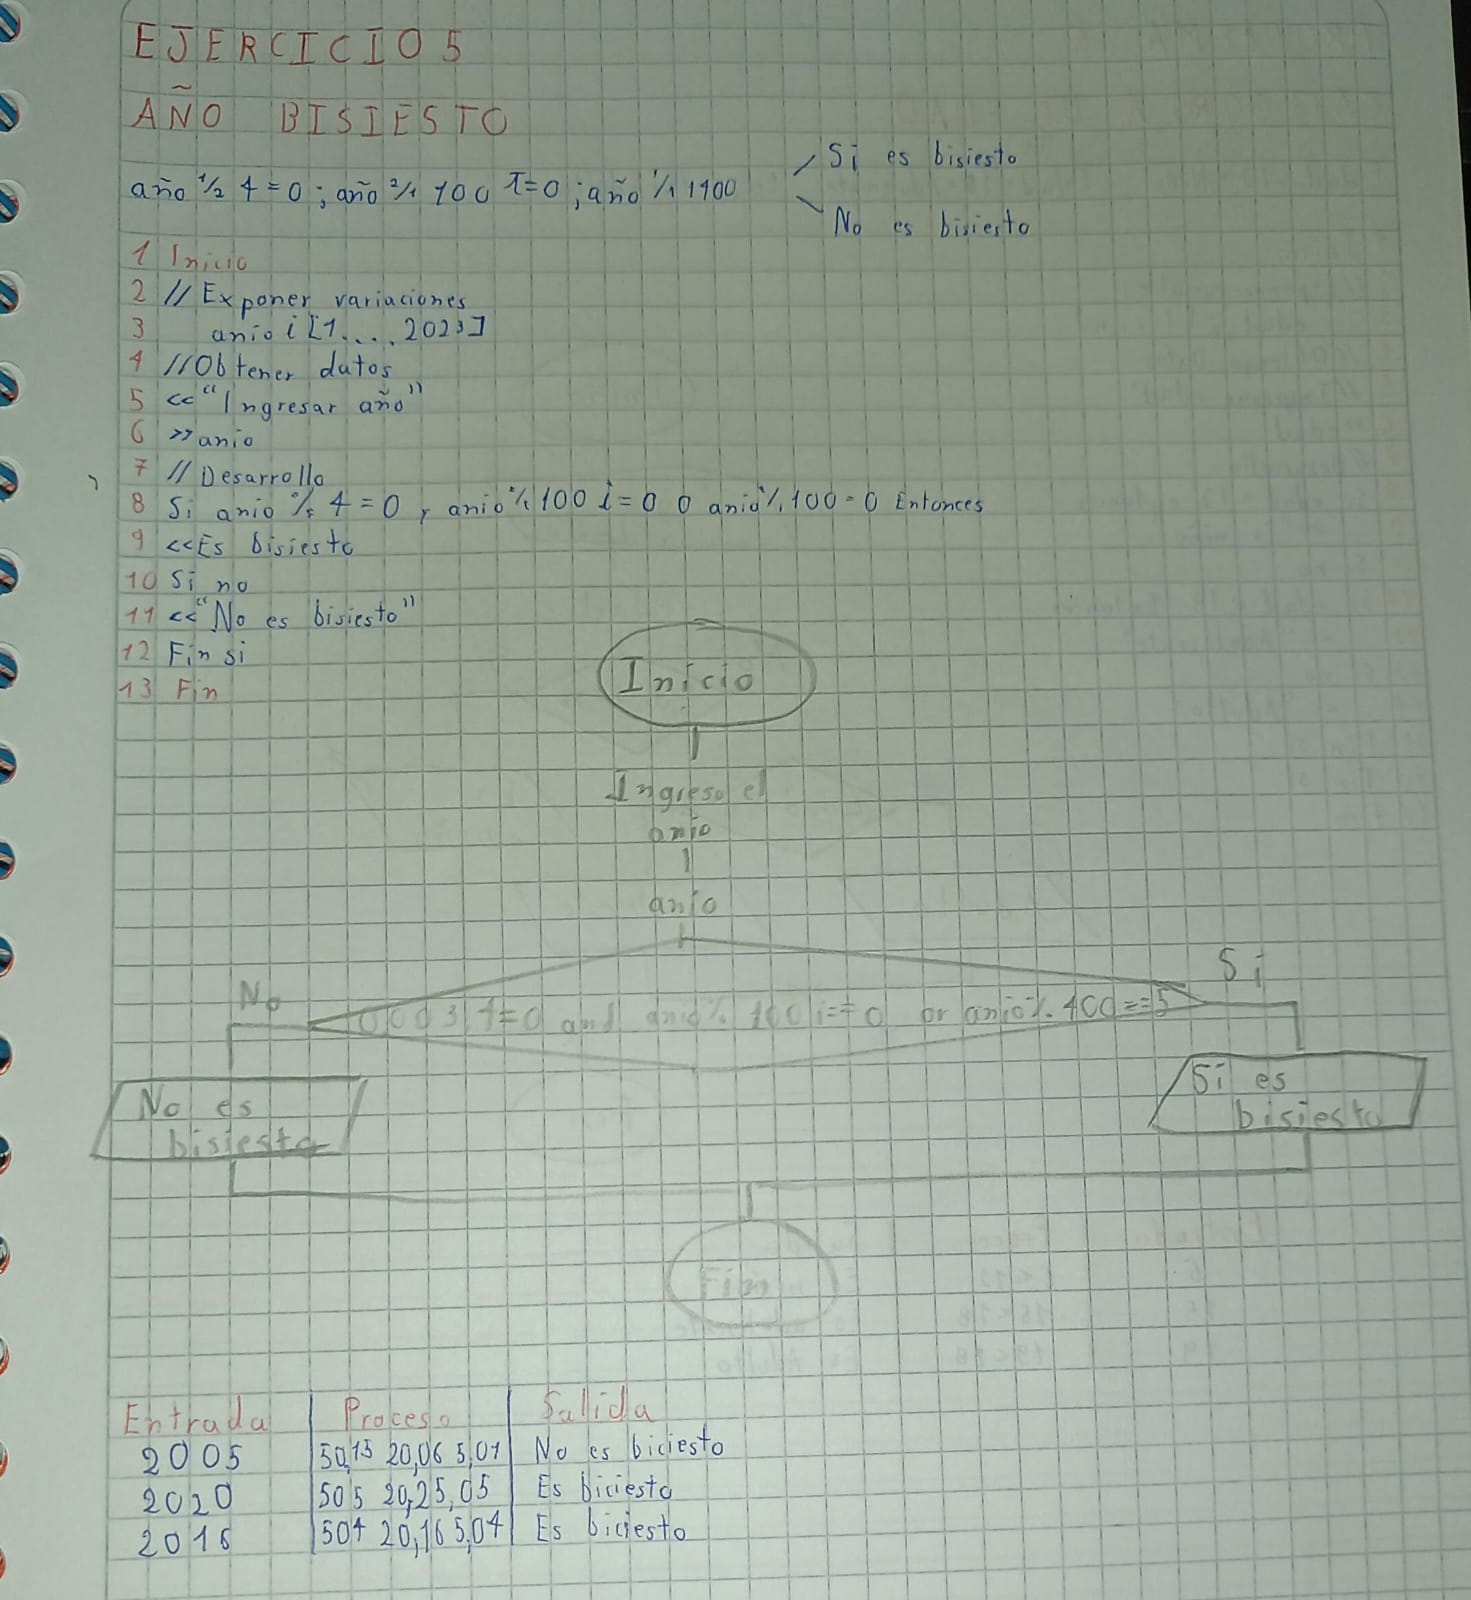 EJERCICIO 5
AÑO BISIESTO
año % 4 = 0 ; año % 100 I=0 ; año % 1400
Si es bisiesto
No es bisiesto
1 Inicio
2 // Exponer variaciones
3 anio i [1.....2023]
4 // Obtener datos
5 << "Ingresar año"
6 >> anio
7 // Desarrollo
8 Si anio % 4 = 0 y anio % 100 i= 0 O anio % 100 = 0 Entonces
9 << Es bisiesto
10 Si no
11 << "No es bisiesto"
12 Fin si
13 Fin
Inicio
Ingreso el
anio
anio
No
Si
4=0 and anio % 100 i==0 or anio %. 400 ==5
No es
bisiesto
Si es
bisiesto
Fin
Entrada Proceso Salida
2005 50,15 20,06 5,01 No es biciesto
2020 505 20,25,05 Es biciesto
2016 504 20,16 5,04 Es biciesto